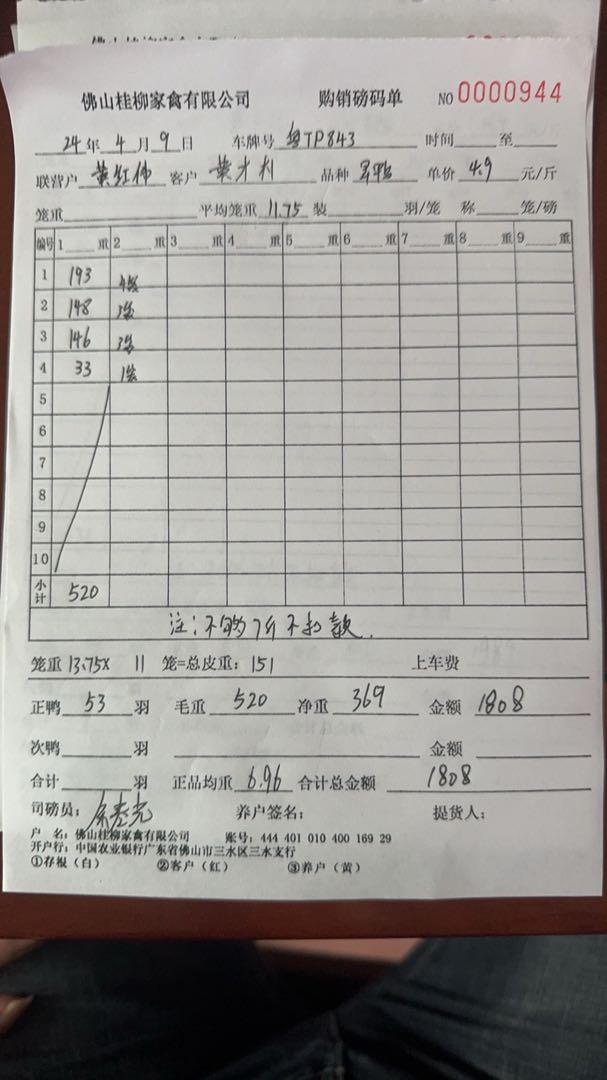 佛山桂柳家禽有限公司 购销磅码单 NO 0000944
24年 4月 9日 车牌号 粤TP843 时间 至
联营户 黄红伟 客户 黄才利 品种 单价 4.9 元/斤
笼重 平均笼重 11.75 装 羽/笼 称 笼/磅
编号 1 重 2 重 3 重 4 重 5 重 6 重 7 重 8 重 9 重
1 193 4笼
2 148 3笼
3 146 3笼
4 33 1笼
5
6
7
8
9
10
小计 520
注:不够7斤不扣款.
笼重 13.75X 11 笼=总皮重: 151 上车费
正鸭 53 羽 毛重 520 净重 369 金额 1808
次鸭 羽 金额
合计 羽 正品均重 6.96 合计总金额 1808
司磅员: 养户签名: 提货人:
户 名: 佛山桂柳家禽有限公司 账号: 444 401 010 400 169 29
开户行: 中国农业银行广东省佛山市三水区三水支行
①存根(白) ②客户(红) ③养户(黄)